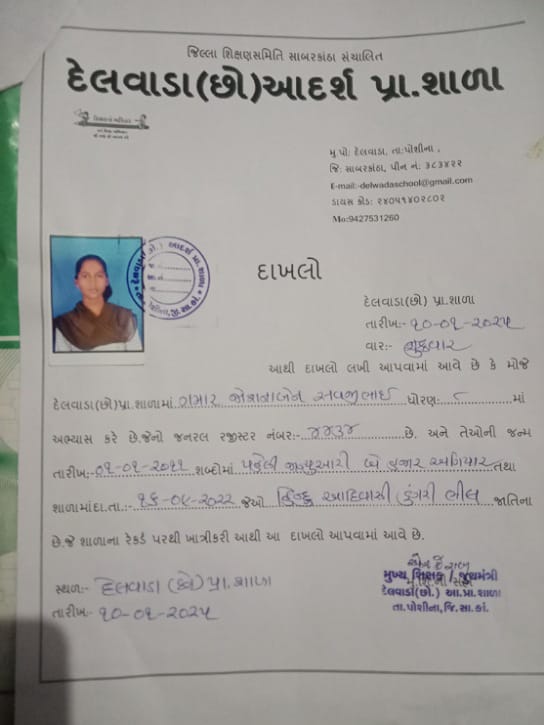 જિલ્લા શિક્ષણસમિતિ સાબરકાંઠા સંચાલિત
દેલવાડા(છો)આદર્શ પ્રા.શાળા
મુ.પો: દેલવાડા, તા:પોશીના ,
જિ: સાબરકાંઠા, પીન નં: ૩૮૩૪૨૨
E-mail:-delwadaschool@gmail.com
ડાયસ કોડ: ૨૪૦૫૧૪૦૨૮૦૨
Mo:9427531260
દાખલો
દેલવાડા(છો) પ્રા.શાળા
તારીખ:- ૧૦-૦૧-૨૦૨૫
વાર:- શુક્રવાર
આથી દાખલો લખી આપવામાં આવે છે કે મોજે
દેલવાડા(છો)પ્રા.શાળામાં ગમાર સવજીભાઈ ધોરણ: ૮ માં
અભ્યાસ કરે છે.જેનો જનરલ રજીસ્ટર નંબર:- ૪૪૩૪ છે. અને તેઓની જન્મ
તારીખ:-૦૧-૦૧-૨૦૧૧ શબ્દોમાં પહેલી જાન્યુઆરી બે હજાર અગિયાર તથા
શાળામાંદા.તા.: ૨૦૨૨ જેઓ હિન્દુ આદિવાસી ડુંગરી ભીલ જાતિના
છે.જે શાળાના રેકર્ડ પરથી ખાત્રીકરી આથી આ દાખલો આપવામાં આવે છે.
સ્થળ:- દેલવાડા (છો) પ્રા. શાળા
તારીખ:- ૧૦-૦૧-૨૦૨૫
મુખ્ય શિક્ષક
દેલવાડા(છો.) આ.પ્રા.શાળા
તા.પોશીના,જિ.સા.કાં.